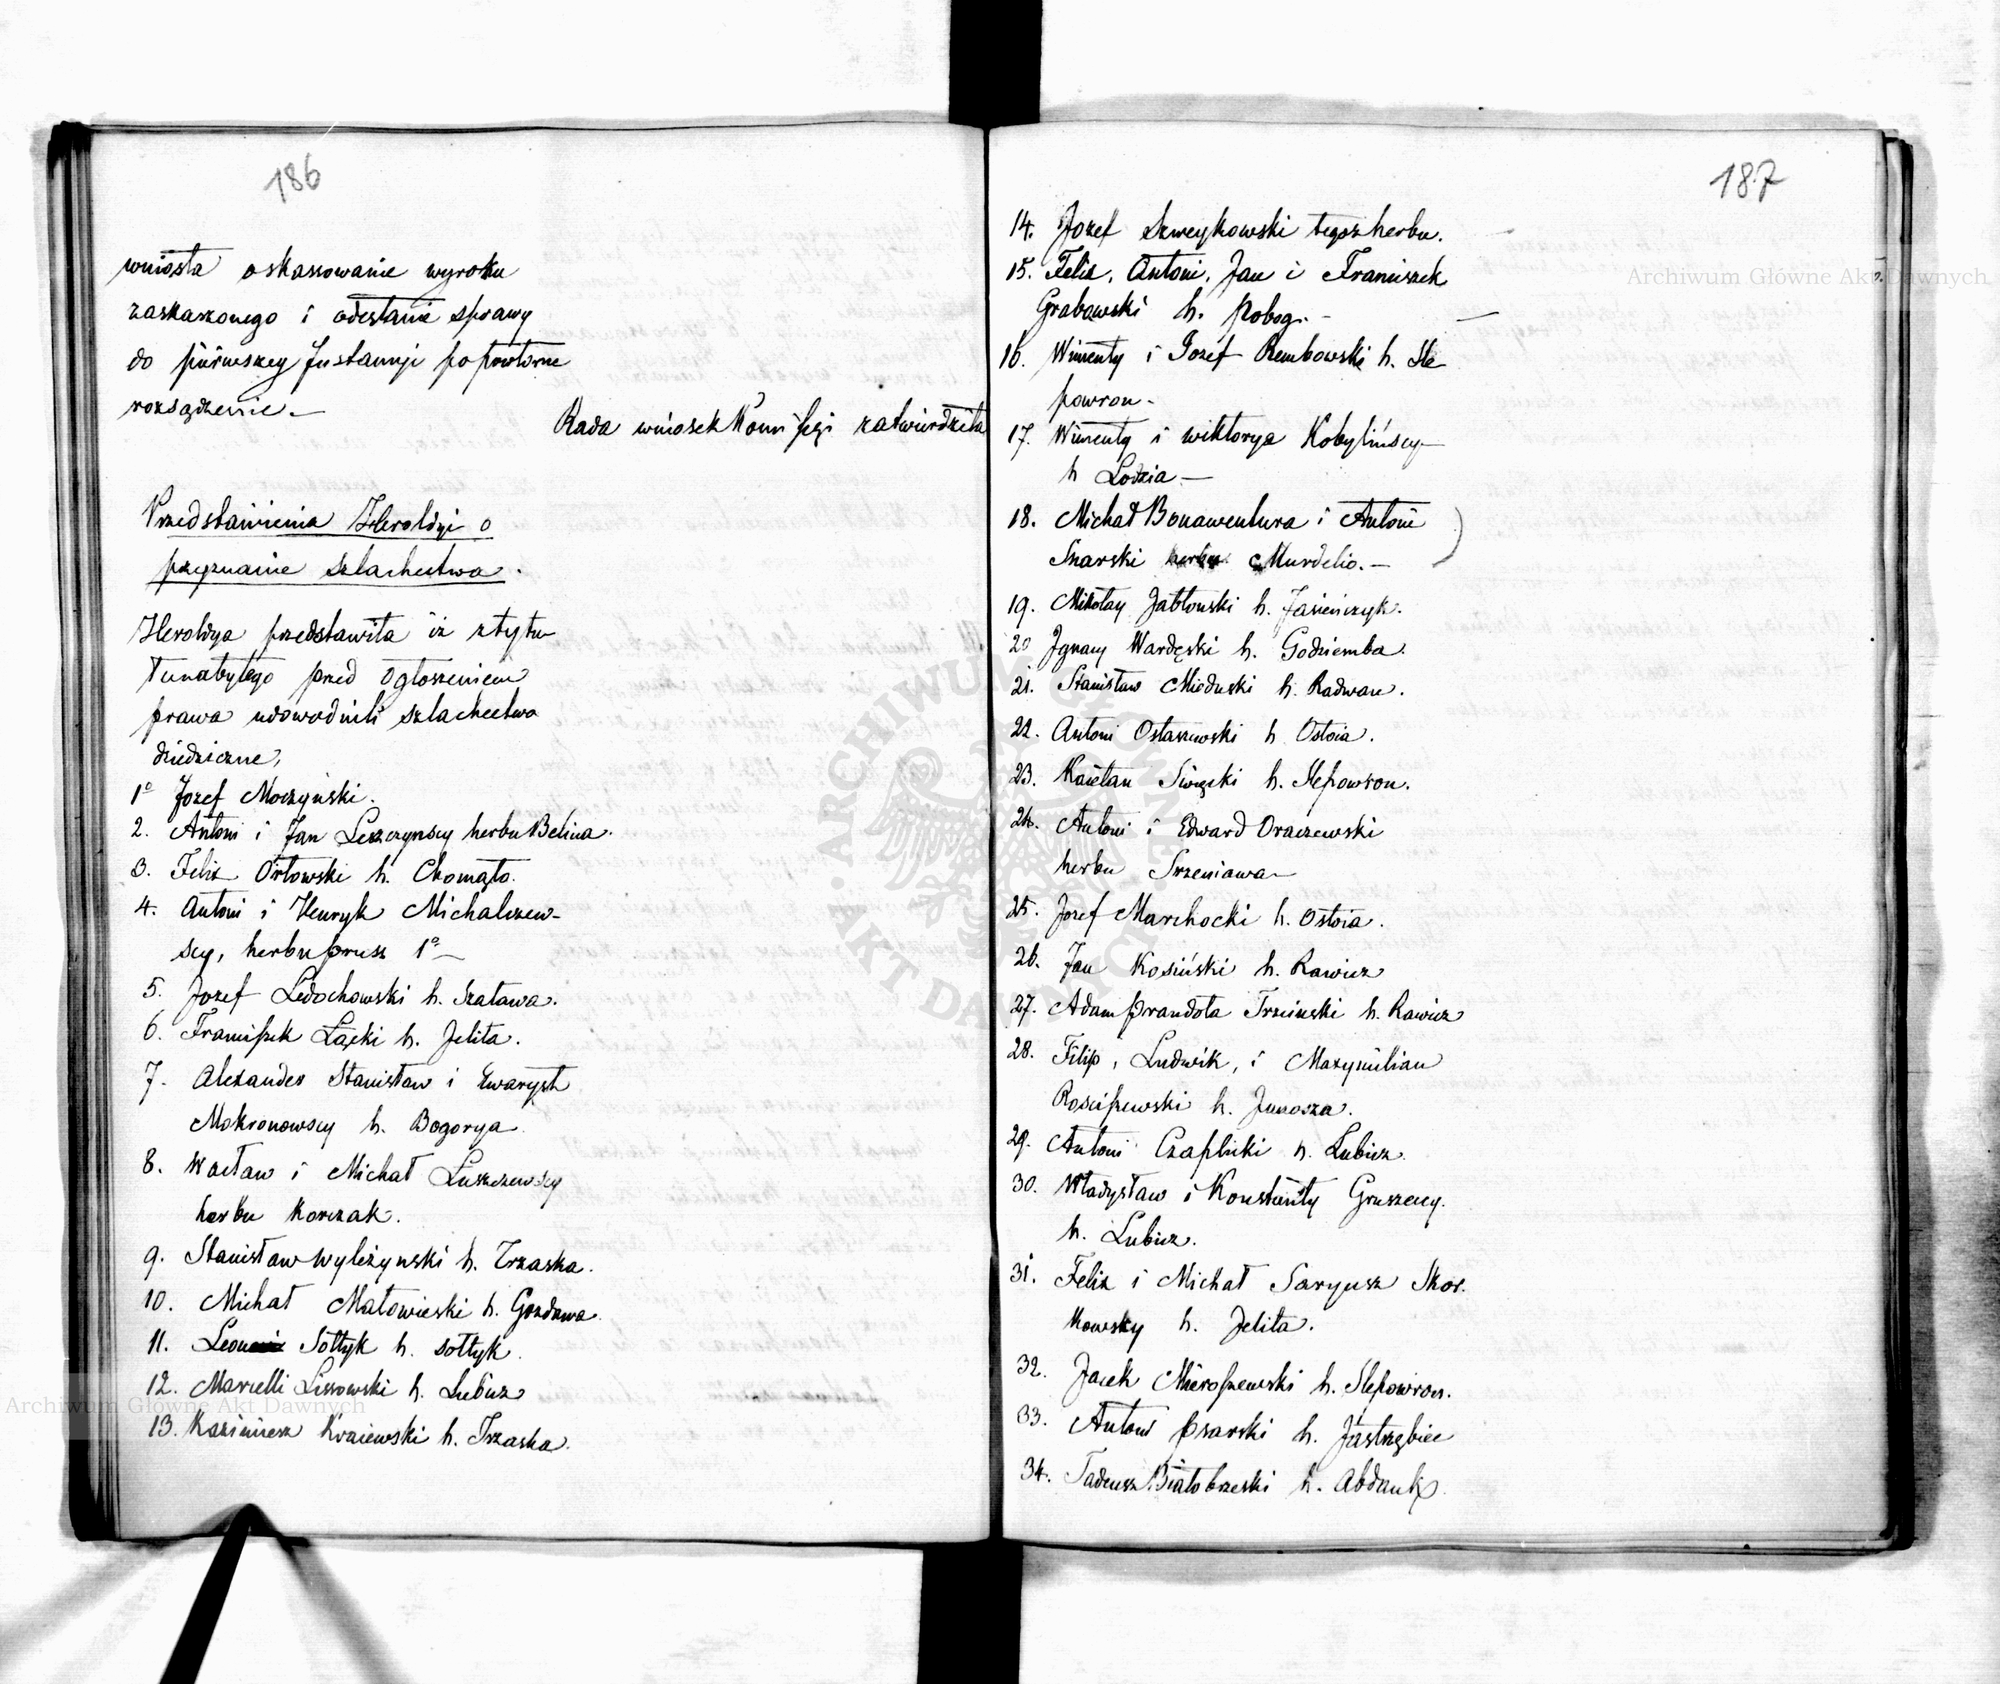 186
wniosła o skassowanie wyroku
zaskarzonego i odesłanie sprawy
do pierwszey Instancyi po powtórne
rozsądzenie –
Rada wniosek Kommissyi zatwierdziła
Przedstawienia Heroldyi o
przyznanie szlachectwa.
Heroldya przedstawiła iż z tytu
łu nabytego przed ogłoszeniem
prawa udowodnili szlachectwo
dziedziczne,
1° Jozef Moczyński.
2. Antoni i Jan Leszczynscy herbu Belina.
3. Felix Orłowski h. Chomąto.
4. Antoni i Henryk Michalczew-
scy, herbu prusz 1° –
5. Jozef Ledochowski h. Szaława.
6. Franciszek Łącki h. Jelita.
7. Alexander Stanisław i Ewaryst
Mokronowscy h. Bogorya.
8. Wacław i Michał Łuszczewscy
herbu Korczak.
9. Stanisław Wyleżynski h. Trzaska.
10. Michał Małowieski h. Gozdawa.
11. Leon Sołtyk h. Sołtyk.
12. Marcelli Lissowski h. Lubicz
13. Kazimierz Kraiewski h. Trzaska.
187
14. Jozef Szweykowski tegoż herbu.
15. Felix, Antoni, Jan i Franciszek
Grabowski h. Pobog. –
16. Wincenty i Józef Rembowski h. Sle
powron –
17. Wincenty i Wiktorya Kobylińscy –
h Lodzia –
18. Michał Bonawentura i Antoni
Snarski herbu Murdelio. –
19. Mikołay Jabłonski h. Jasieńczyk.
20 Ignacy Wardęski h. Godziemba.
21. Stanisław Mieduski h. Radwan.
22. Antoni Ostaszewski h Ostoia.
23. Kaietan Święcki h. Slepowron.
24. Antoni i Edward Oraczewski
herbu Srzeniawa –
25. Jozef Marchocki h. Ostoia.
26. Jan Kosiński h. Rawicz
27. Adam Prandota Trzcinski h. Rawicz
28. Filip, Ludwik, i Maxymilian
Rosciszewski h. Junosza.
29. Antoni Czaplicki h. Lubicz.
30. Władysław i Konstanty Gruszeccy.
h. Lubicz.
31. Felix i Michał Saryusz Skor.
kowscy h. Jelita.
32. Jacek Mieroszewski h. Slepowron.
33. Antoni Psarski h. Jastrzębiec
34. Tadeusz Białobrzeski h. Abdank.
Archiwum Główne Akt Dawnych
Archiwum Główne Akt Dawnych
ARCHIWUM GŁÓWNE AKT DAWNYCH